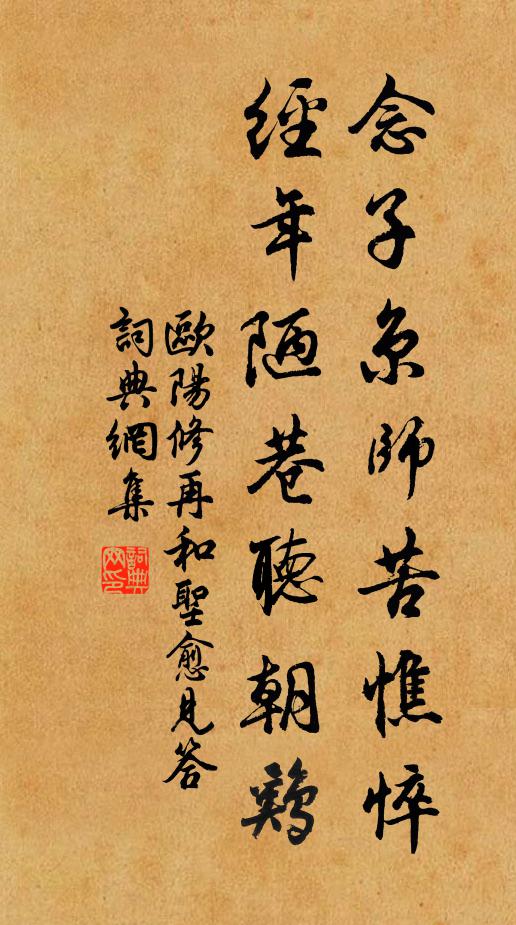 念子京師苦憔悴
經年陋巷聽朝鷄
歐陽修再和聖俞見答
詞典網集
詞典網印